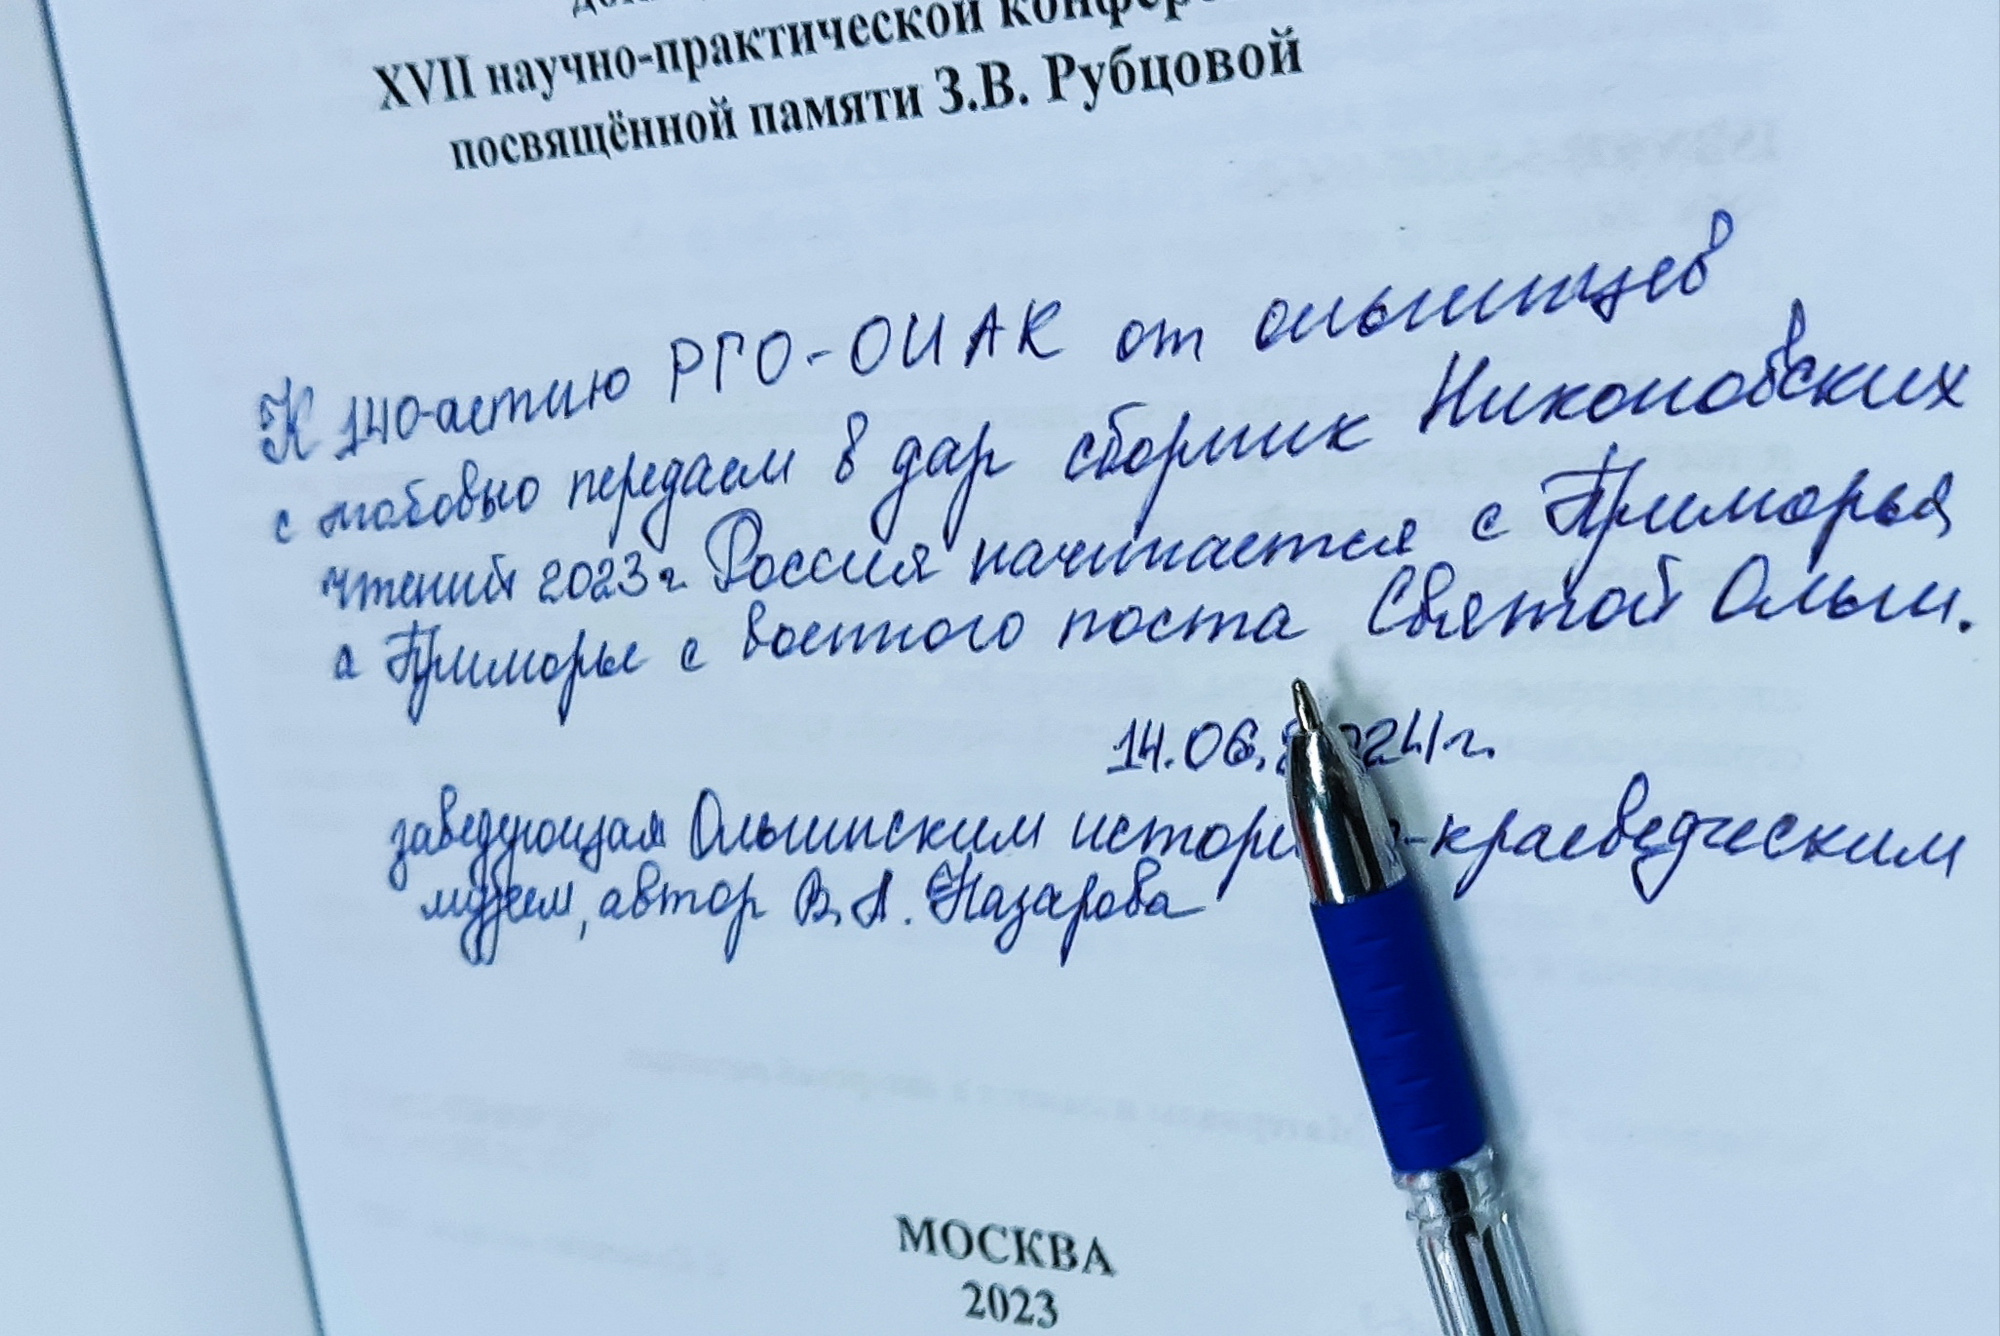 XVII научно-практической конфер
посвящённой памяти З.В. Рубцовой
К 140-летию РГО-ОИАК от ольгинцев
с любовью передаем в дар сборник Никоновских
чтений 2023 г. Россия начинается с Приморья,
а Приморье с военного поста Святой Ольги.
14.06.2024 г.
заведующая Ольгинским историко-краеведческим
музеем, автор В.А. Назарова
МОСКВА
2023